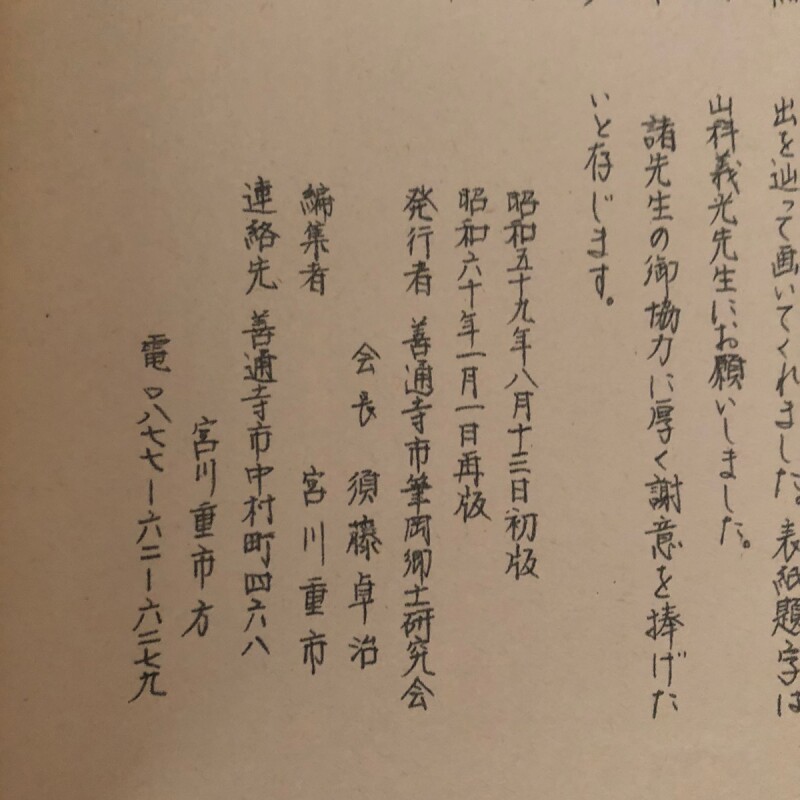 出を辿って画いてくれました。表紙題字は
山科義光先生にお願いしました。
諸先生の御協力に厚く謝意を捧げた
いと存じます。
昭和五十九年八月十三日初版
昭和六十年一月一日再版
発行者 善通寺市筆岡郷土研究会
会長 須藤卓治
編集者 宮川重市
連絡先 善通寺市中村町四六八
宮川重市方
電〇八七七ー六二ー六二七九